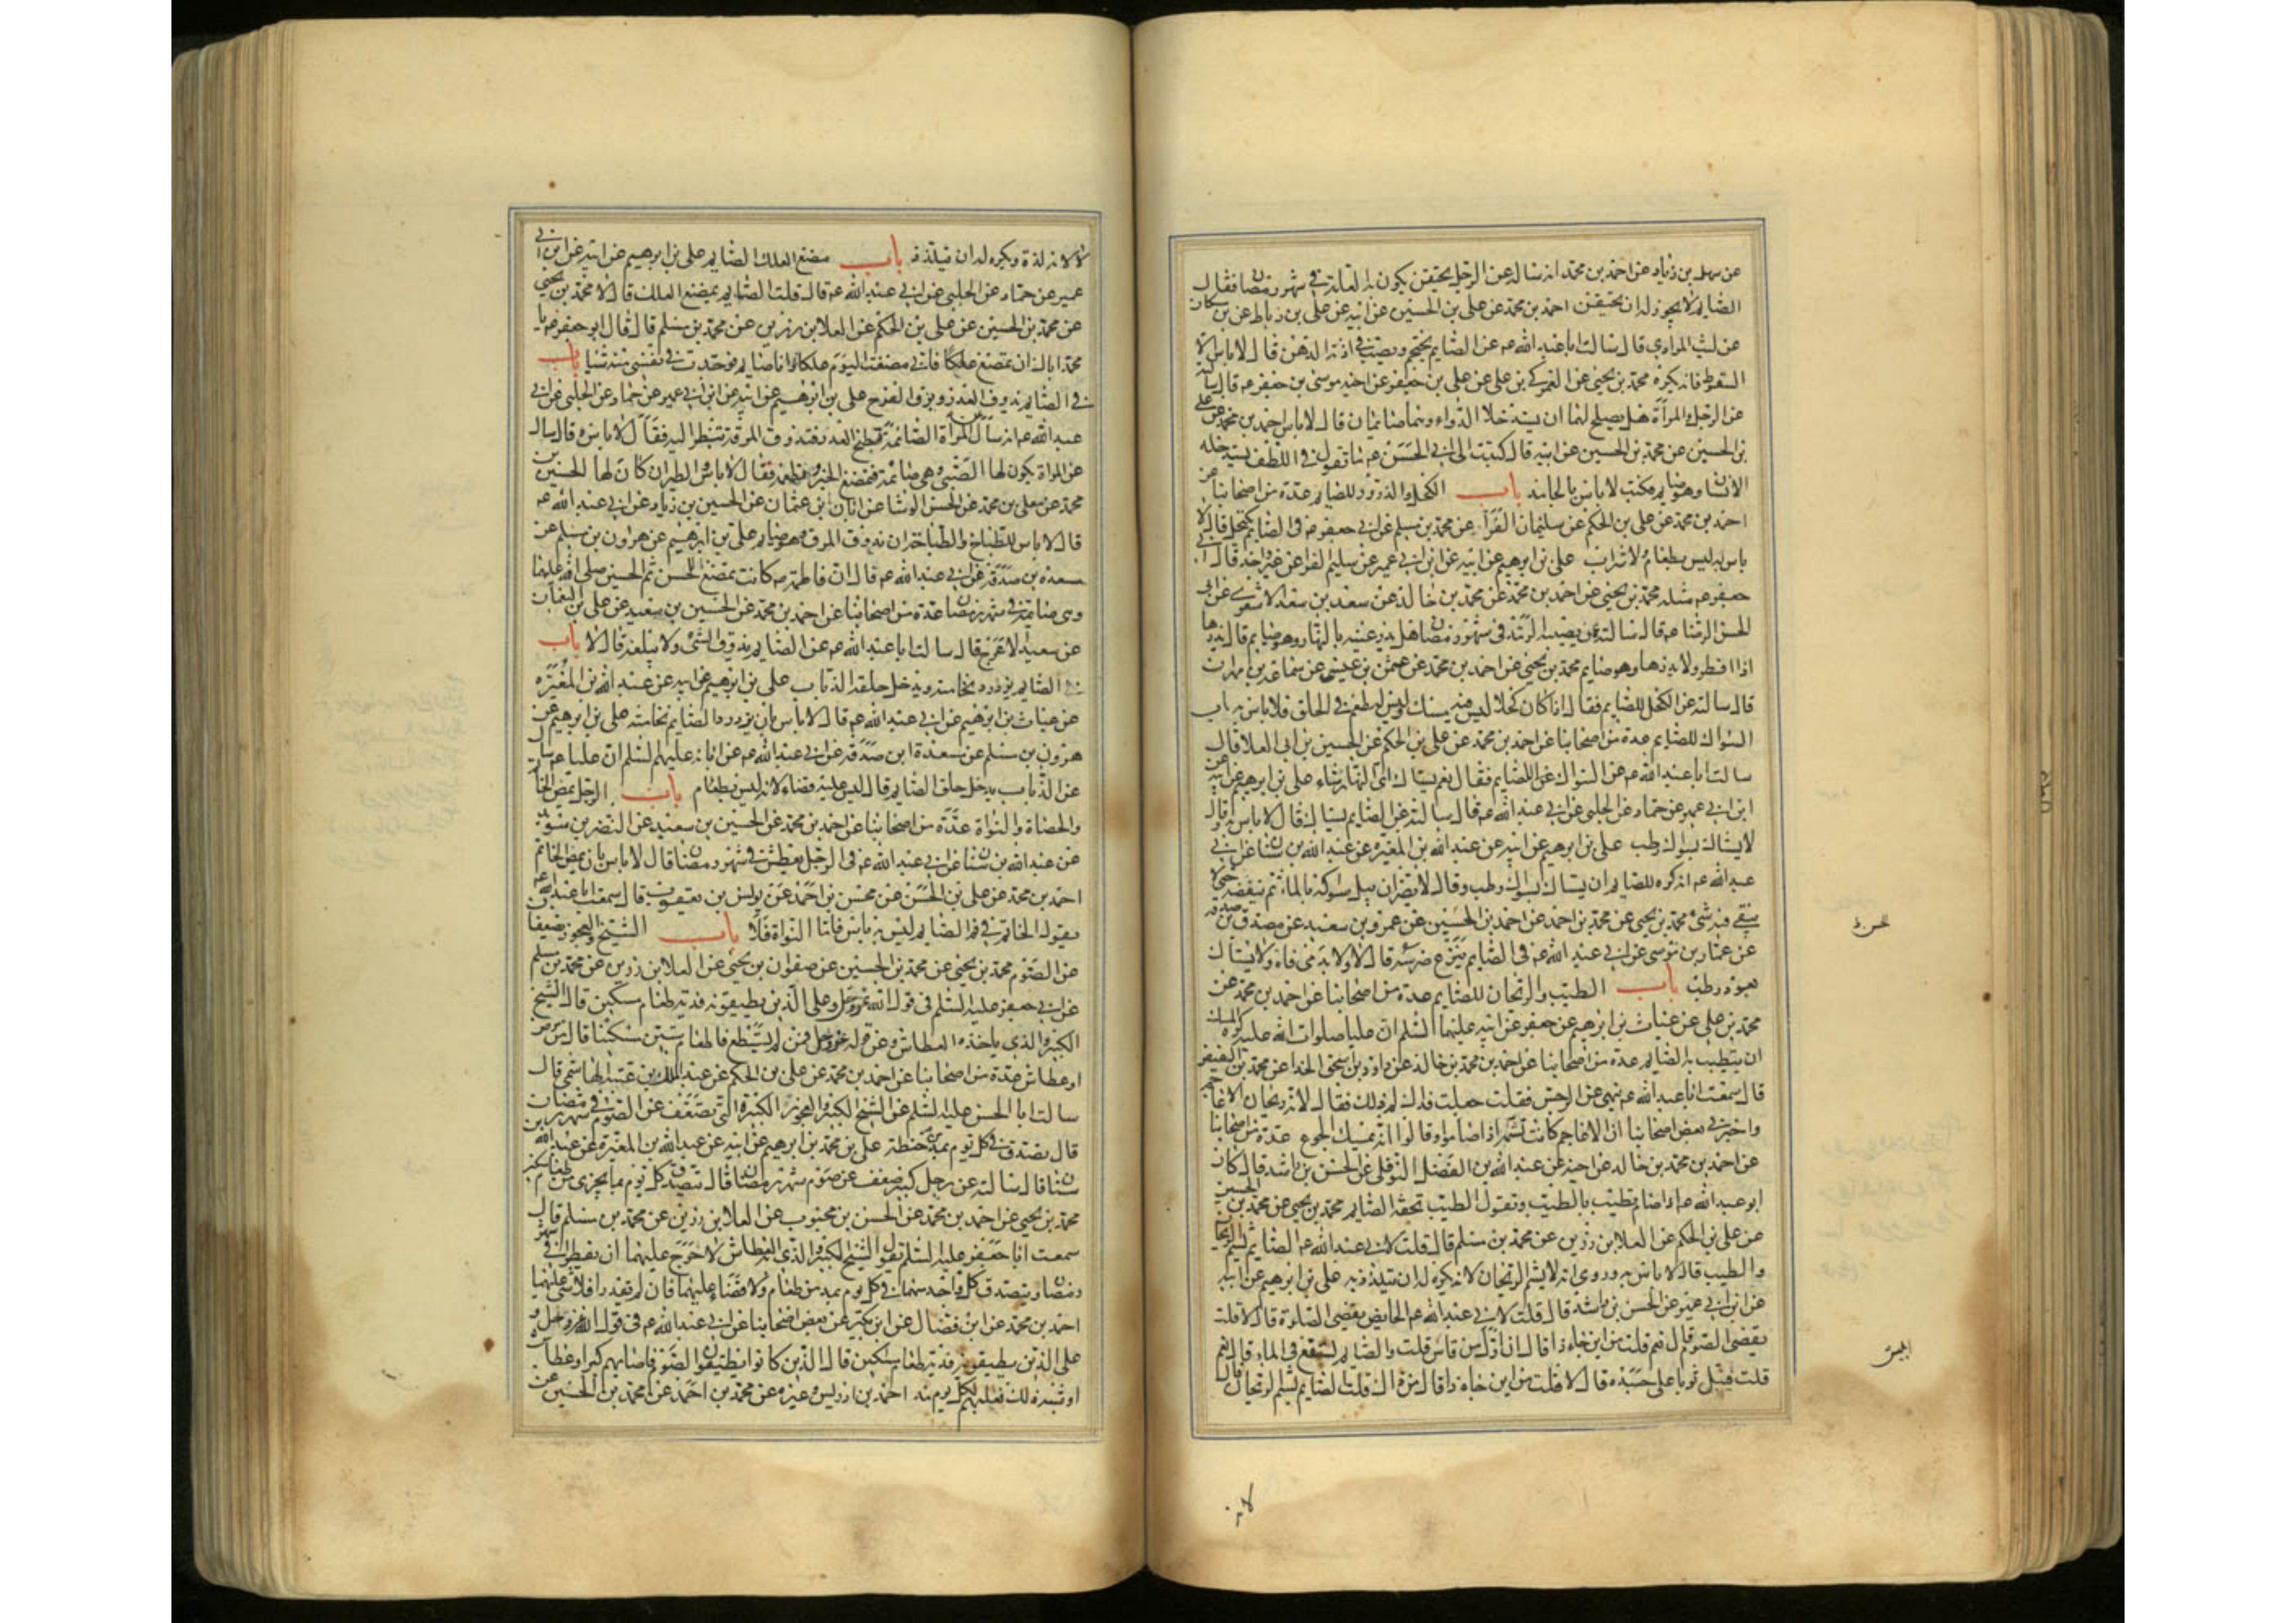 عن سهل بن زياد عن احمد بن محمد انه ساله عن الرجل يحتقن يكون به العلة في شهر رمضان فقال
الصايم لا يجوز له ان يحتقن احمد بن محمد عن علي بن الحسين عن ابيه عن علي بن رباط عن بن مسكان
عن ليث المرادي قال سالت ابا عبد الله عه عن الصايم يحتجم ويصب في اذنه الدهن قال لا باس الا
السعوط فانه يكره محمد بن يحيى عن العمركي بن علي عن علي بن جعفر عن اخيه موسى بن جعفر عه قال سالته
عن الرجل والمراة هل يصلح لهما ان يستدخلا الدواء وهما صايمان قال لا باس احمد بن محمد عن علي
بن الحسين عن محمد بن الحسين عن ابيه قال كتبت الى ابي الحسن عه ما تقول في اللطف يستدخله
الانسان وهو صايم فكتب لا باس بالجامد باب الكحل والذرور للصايم عدة من اصحابنا عن
احمد بن محمد عن علي بن الحكم عن سليمان الفرآ عن محمد بن مسلم عن ابي جعفر عه في الصايم يكتحل قال لا
باس به ليس بطعام ولا شراب علي بن ابرهيم عن ابيه عن ابن ابي عمير عن سليم الفرا عن غير واحد عن ابي
جعفر عه مثله محمد بن يحيى عن احمد بن محمد عن محمد بن خالد عن سعد بن سعد الاشعري عن ابي
الحسن الرضا عه قال سالته عمن يصيبه الرمد في شهر رمضان هل يذر عينه بالنهار وهو صايم قال يذرها
اذا افطر ولا يذرها وهو صايم محمد بن يحيى عن احمد بن محمد عن عثمن بن عيسى عن سماعة بن مهران
قال سالته عن الكحل للصايم فقال اذا كان كحلا ليس فيه مسك وليس له طعم في الحلق فلا باس به باب
السواك للصايم عدة من اصحابنا عن احمد بن محمد عن علي بن الحكم عن الحسين بن ابي العلا قال
سالت ابا عبد الله عه عن السواك للصايم فقال نعم يستاك اي النهار شاء علي بن ابرهيم عن ابيه عن
ابن ابي عمير عن حماد عن الحلبي عن ابي عبد الله عه قال سالته عن الصايم يستاك قال لا باس به وقال
لا يستاك بسواك رطب علي بن ابرهيم عن ابيه عن عبد الله بن المغيرة عن عبد الله بن سنان عن ابي
عبد الله عه انه كره للصايم ان يستاك بسواك رطب وقال لا يضر ان يبل سواكه بالماء ثم ينفضه حتى لا
يبقى فيه شيء محمد بن يحيى عن محمد بن احمد عن احمد بن الحسين عن عمرو بن سعيد عن مصدق بن صدقه
عن عمار بن موسى عن ابي عبد الله عه في الصايم ينزع ضرسه قال لا ولا يدمي فاه ولا يستاك
بعود رطب باب الطيب والريحان للصايم عدة من اصحابنا عن احمد بن محمد عن
محمد بن علي عن غياث بن ابرهيم عن جعفر عن ابيه عليهما السلم ان عليا صلوات الله عليه كره المسك
ان يتطيب به الصايم عدة من اصحابنا عن احمد بن محمد بن خالد عن داود بن اسحق الحذا عن محمد بن الفيض
قال سمعت ابا عبد الله عه ينهى عن النرجس فقلت جعلت فداك لم ذلك فقال لانه ريحان الاعاجم
واخبرني بعض اصحابنا ان الاعاجم كانت تشمه اذا صاموا وقالوا انه يمسك الجوع عدة من اصحابنا
عن احمد بن محمد بن خالد عن ابيه عن عبد الله بن الفضل النوفلي عن الحسن بن راشد قال كان
ابو عبد الله عه اذا صام تطيب بالطيب ويقول الطيب تحفة الصايم محمد بن يحيى عن محمد بن الحسين
عن علي بن الحكم عن العلا بن رزين عن محمد بن مسلم قال قلت لابي عبد الله عه الصايم يشم الريحان
والطيب قال لا باس به وروي انه لا يشم الريحان لانه يكره له ان يتلذذ به علي بن ابرهيم عن ابيه
عن ابن ابي عمير عن الحسن بن راشد قال قلت لابي عبد الله عه الحايض يقضي الصلوة قال لا قلت
تقضي الصوم قال نعم قلت من اين جاء ذا قال ان اول من قاس قلت والصايم يستنقع في الماء قال نعم
قلت فيبل ثوبا على جسده قال لا قلت من اين جاء ذا قال من ذاك قلت الصايم يشم الريحان قال
لا لانه
لانه لذة ويكره له ان يتلذذ باب مضغ العلك للصايم علي بن ابرهيم عن ابيه عن ابن ابي
عمير عن حماد عن الحلبي عن ابي عبد الله عه قال قلت الصايم يمضغ العلك قال لا محمد بن يحيى
عن محمد بن الحسين عن علي بن الحكم عن العلا بن رزين عن محمد بن مسلم قال قال ابو جعفر عه يا
محمد اياك ان تمضغ علكا فاني مضغت اليوم علكا وانا صايم فوجدت في نفسي منه شيا باب
في الصايم يذوق القدر ويزق الفرخ علي بن ابرهيم عن ابيه عن ابن ابي عمير عن حماد عن الحلبي عن ابي
عبد الله عه انه سال عن المراة الصائمة تطبخ القدر فتذوق المرقة تنظر اليه فقال لا باس به قال وسال
عن المراة يكون لها الصبي وهي صائمة فتمضغ الخبز وتطعمه فقال لا باس والطير ان كان لها الحسين بن
محمد عن معلى بن محمد عن الحسن الوشا عن ابان بن عثمان عن الحسين بن زياد عن ابي عبد الله عه
قال لا باس للطباخ والطباخة ان يذوق المرق وهو صايم علي بن ابرهيم عن هرون بن مسلم عن
مسعدة بن صدقة عن ابي عبد الله عه قال ان فاطمة عه كانت تمضغ للحسن ثم الحسين صلى الله عليهما
وهي صائمة في شهر رمضان عدة من اصحابنا عن احمد بن محمد عن الحسين بن سعيد عن علي بن النعمان
عن سعيد الاعرج قال سالت ابا عبد الله عه عن الصايم يذوق الشيء ولا يبلعه قال لا باب
في الصايم يزدرد نخامته ويدخل حلقه الذباب علي بن ابرهيم عن ابيه عن عبد الله بن المغيرة
عن غياث بن ابرهيم عن ابي عبد الله عه قال لا باس بان يزدرد الصايم نخامته علي بن ابرهيم عن
هرون بن مسلم عن مسعدة ابن صدقة عن ابي عبد الله عه عن ابائه عليهم السلم ان عليا عه سال
عن الذباب يدخل حلق الصايم قال ليس عليه قضاء لانه ليس بطعام باب الرجل يمص الخاتم
والحصاة والنواة عدة من اصحابنا عن احمد بن محمد عن الحسين بن سعيد عن النضر بن سويد
عن عبد الله بن سنان عن ابي عبد الله عه في الرجل يعطش في شهر رمضان قال لا باس بان يمص الخاتم
احمد بن محمد عن علي بن الحسن عن محسن بن احمد عن يونس بن يعقوب قال سمعت ابا عبد الله عه
يقول الخاتم في فم الصايم ليس به باس فاما النواة فلا باب الشيخ والعجوز يضعفا
عن الصوم محمد بن يحيى عن محمد بن الحسين عن صفوان بن يحيى عن العلا بن رزين عن محمد بن مسلم
عن ابي جعفر عليه السلم في قول الله عز وجل وعلى الذين يطيقونه فدية طعام مسكين قال الشيخ
الكبير والذي ياخذه العطاش وعن قوله عز وجل فمن لم يستطع فاطعام ستين مسكينا قال من مرض
او عطاش عدة من اصحابنا عن احمد بن محمد عن علي بن الحكم عن عبد الملك بن عتبة الهاشمي قال
سالت ابا الحسن عليه السلم عن الشيخ الكبير والعجوز الكبيرة التي تضعف عن الصوم في شهر رمضان
قال يصدق في كل يوم بمد حنطة علي بن محمد بن ابرهيم عن ابيه عن عبد الله بن المغيرة عن عبد الله بن
سنان قال سالته عن رجل كبير ضعف عن صوم شهر رمضان قال يتصدق كل يوم بما يجزي من طعام مسكين
محمد بن يحيى عن احمد بن محمد عن الحسن بن محبوب عن العلا بن رزين عن محمد بن مسلم قال
سمعت ابا جعفر عليه السلم يقول الشيخ الكبير والذي به العطاش لا حرج عليهما ان يفطرا في شهر
رمضان ويتصدق كل واحد منهما في كل يوم بمد من طعام ولا قضاء عليهما فان لم يقدرا فلا شيء عليهما
احمد بن محمد عن ابن فضال عن ابن بكير عن بعض اصحابنا عن ابي عبد الله عه في قول الله عز وجل و
على الذين يطيقونه فدية طعام مسكين قال الذين كانوا يطيقون الصوم فاصابهم كبر او عطاش
او شبه ذلك فعليهم لكل يوم مد احمد بن ادريس وغيره عن محمد بن احمد عن محمد بن الحسين عن